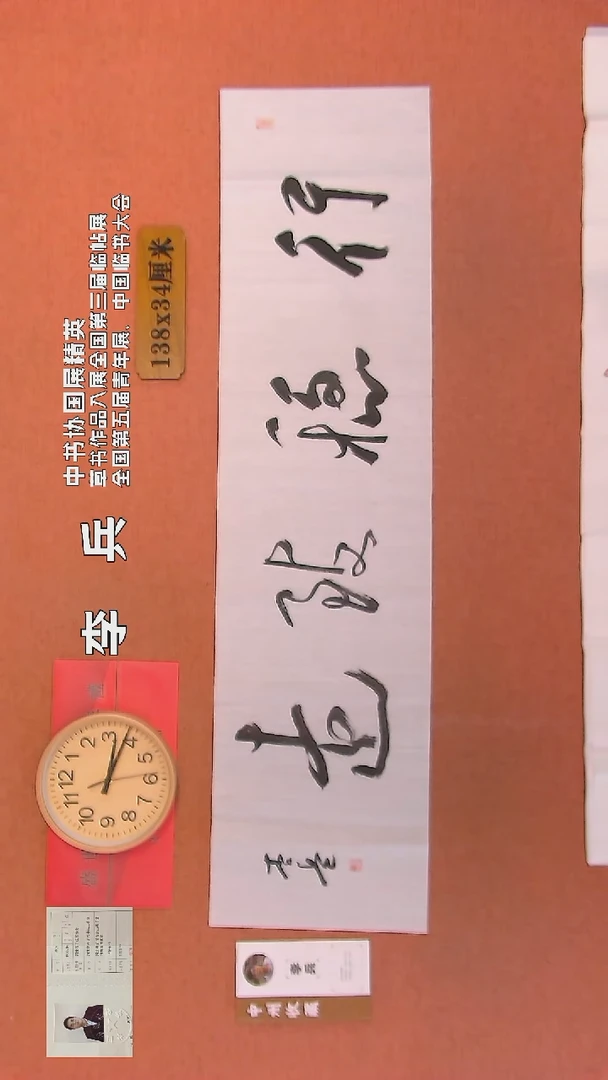 李 兵
中书协国展精英
草书作品入展全国第三届临帖展
全国第五届青年展、中国临书大会
138x34厘米
12 1 2 3 4 5 6 7 8 9 10 11
行穩致遠
李兵
中州收藏